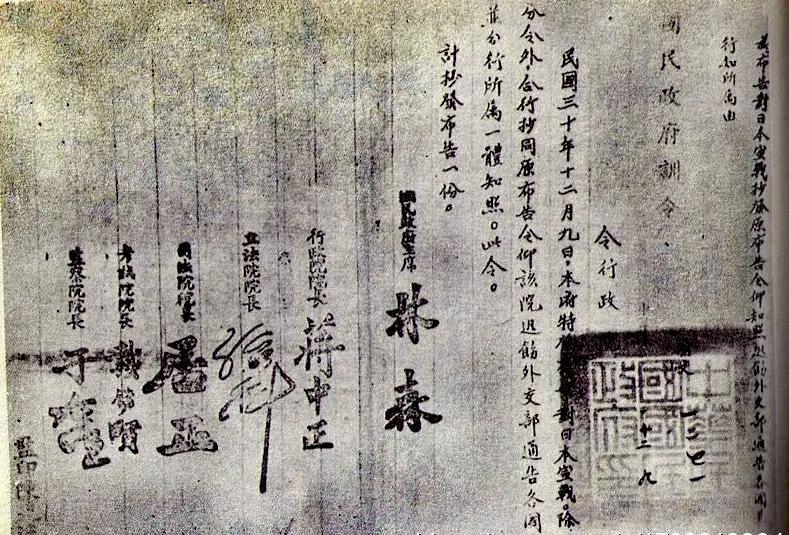 布告對日本宣戰抄發原布告令仰知照迅飭外交部通告各國
行知所屬由
國民政府訓令
令行政
民國三十年十二月九日，本府特 對日本宣戰。除
分令外，合行抄同原布告令仰該院迅飭外交部通告各國
並分行所屬一體知照。此令。
計抄發布告一份。
國民政府主席 林森
行政院院長 蔣中正
立法院院長 孫科
司法院院長 居正
考試院院長 戴傳賢
監察院院長 于右任
監印陳